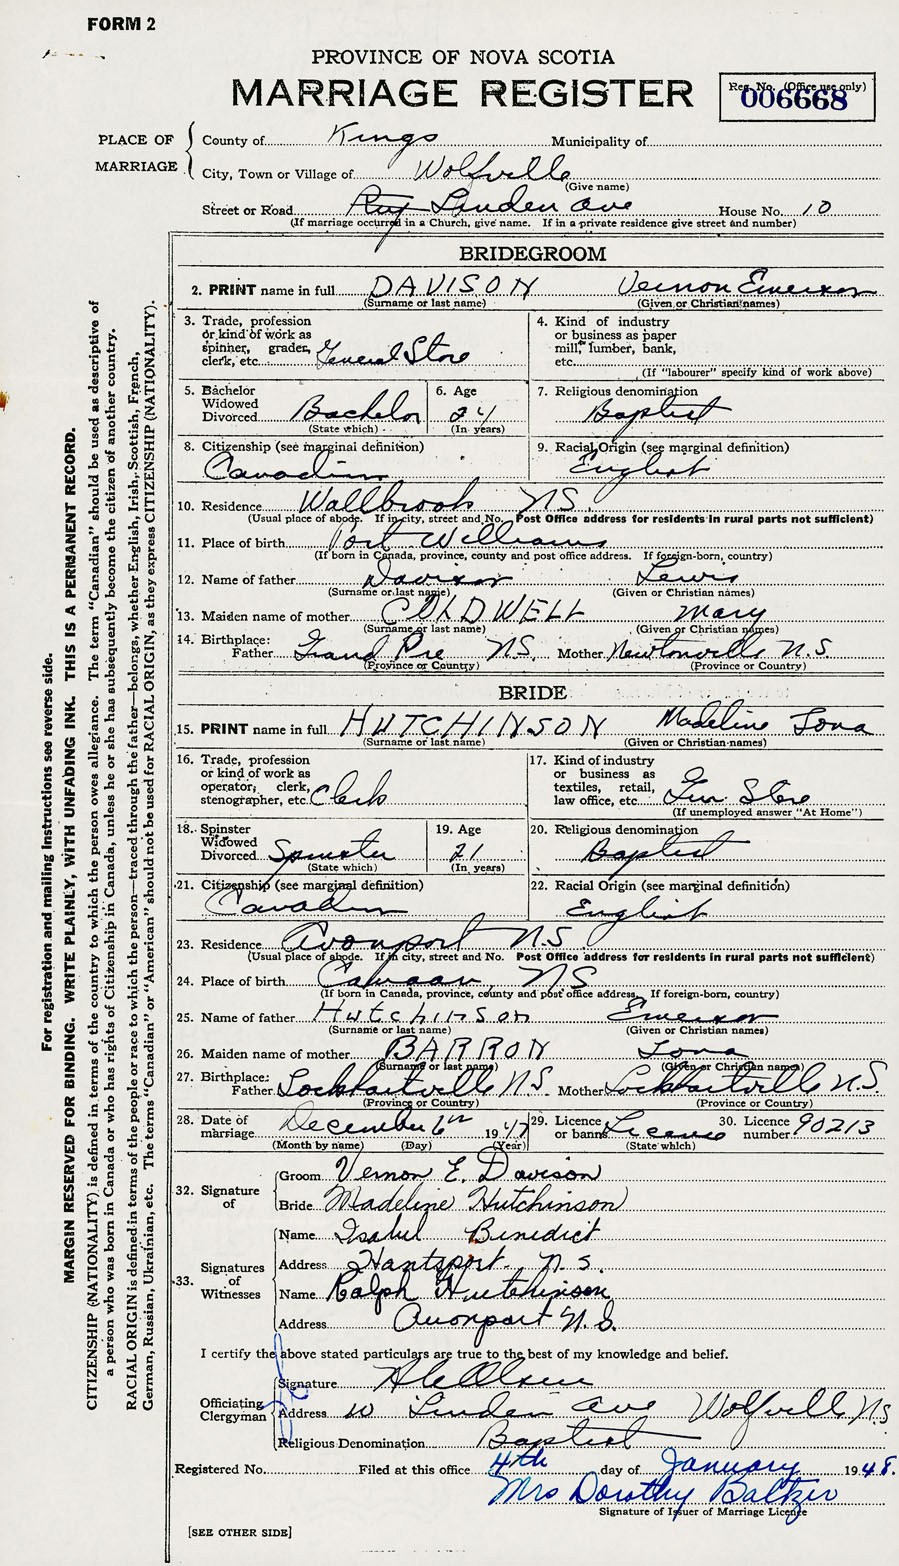 FORM 2
PROVINCE OF NOVA SCOTIA
MARRIAGE REGISTER
Reg. No. (Office use only)
006668
PLACE OF MARRIAGE
County of Kings Municipality of
City, Town or Village of Wolfville
(Give name)
Street or Road Linden Ave House No. 10
(If marriage occurred in a Church, give name. If in a private residence give street and number)
BRIDEGROOM
2. PRINT name in full DAVISON Vernon Emerson
(Surname or last name) (Given or Christian names)
3. Trade, profession or kind of work as spinner, grader, clerk, etc. General Store
4. Kind of industry or business as paper mill, lumber, bank, etc.
(If "labourer" specify kind of work above)
5. Bachelor Widowed Divorced Bachelor
(State which)
6. Age 24
(In years)
7. Religious denomination Baptist
8. Citizenship (see marginal definition) Canadian
9. Racial Origin (see marginal definition) English
10. Residence Wallbrook NS.
(Usual place of abode. If in city, street and No. Post Office address for residents in rural parts not sufficient)
11. Place of birth Port Williams
(If born in Canada, province, county and post office address. If foreign-born, country)
12. Name of father Davison Lewis
(Surname or last name) (Given or Christian names)
13. Maiden name of mother COLDWELL Mary
(Surname or last name) (Given or Christian names)
14. Birthplace: Father Grand Pre NS. Mother Newtonville N.S.
(Province or Country) (Province or Country)
BRIDE
15. PRINT name in full HUTCHINSON Madeline Iona
(Surname or last name) (Given or Christian names)
16. Trade, profession or kind of work as operator, clerk, stenographer, etc. Clerk
17. Kind of industry or business as textiles, retail, law office, etc. Gen Store
(If unemployed answer "At Home")
18. Spinster Widowed Divorced Spinster
(State which)
19. Age 21
(In years)
20. Religious denomination Baptist
21. Citizenship (see marginal definition) Canadian
22. Racial Origin (see marginal definition) English
23. Residence Avonport N.S.
(Usual place of abode. If in city, street and No. Post Office address for residents in rural parts not sufficient)
24. Place of birth Canaan, NS
(If born in Canada, province, county and post office address. If foreign-born, country)
25. Name of father Hutchinson Emerson
(Surname or last name) (Given or Christian names)
26. Maiden name of mother BARRON Iona
(Surname or last name) (Given or Christian names)
27. Birthplace: Father Lockhartville N.S. Mother Lockhartville N.S.
(Province or Country) (Province or Country)
28. Date of marriage December 6th 1947
(Month by name) (Day) (Year)
29. Licence or banns License
(State which)
30. Licence number 90213
32. Signature of
Groom Vernon E. Davison
Bride Madeline Hutchinson
33. Signatures of Witnesses
Name Isabel Benedict
Address Hantsport. N.S.
Name Ralph Hutchinson
Address Avonport N.S.
I certify the above stated particulars are true to the best of my knowledge and belief.
Officiating Clergyman
Signature
Address 10 Linden Ave Wolfville N.S
Religious Denomination Baptist
Registered No. Filed at this office 4th day of January 1948.
Mrs Dorothy Baltzer
Signature of Issuer of Marriage Licence
[SEE OTHER SIDE]
For registration and mailing instructions see reverse side.
MARGIN RESERVED FOR BINDING. WRITE PLAINLY, WITH UNFADING INK. THIS IS A PERMANENT RECORD.
CITIZENSHIP (NATIONALITY) is defined in terms of the country to which the person owes allegiance. The term "Canadian" should be used as descriptive of
a person who was born in Canada or who has rights of Citizenship in Canada, unless he or she has subsequently become the citizen of another country.
RACIAL ORIGIN is defined in terms of the people or race to which the person—traced through the father—belongs, whether English, Irish, Scottish, French,
German, Russian, Ukrainian, etc. The terms "Canadian" or "American" should not be used for RACIAL ORIGIN, as they express CITIZENSHIP (NATIONALITY).